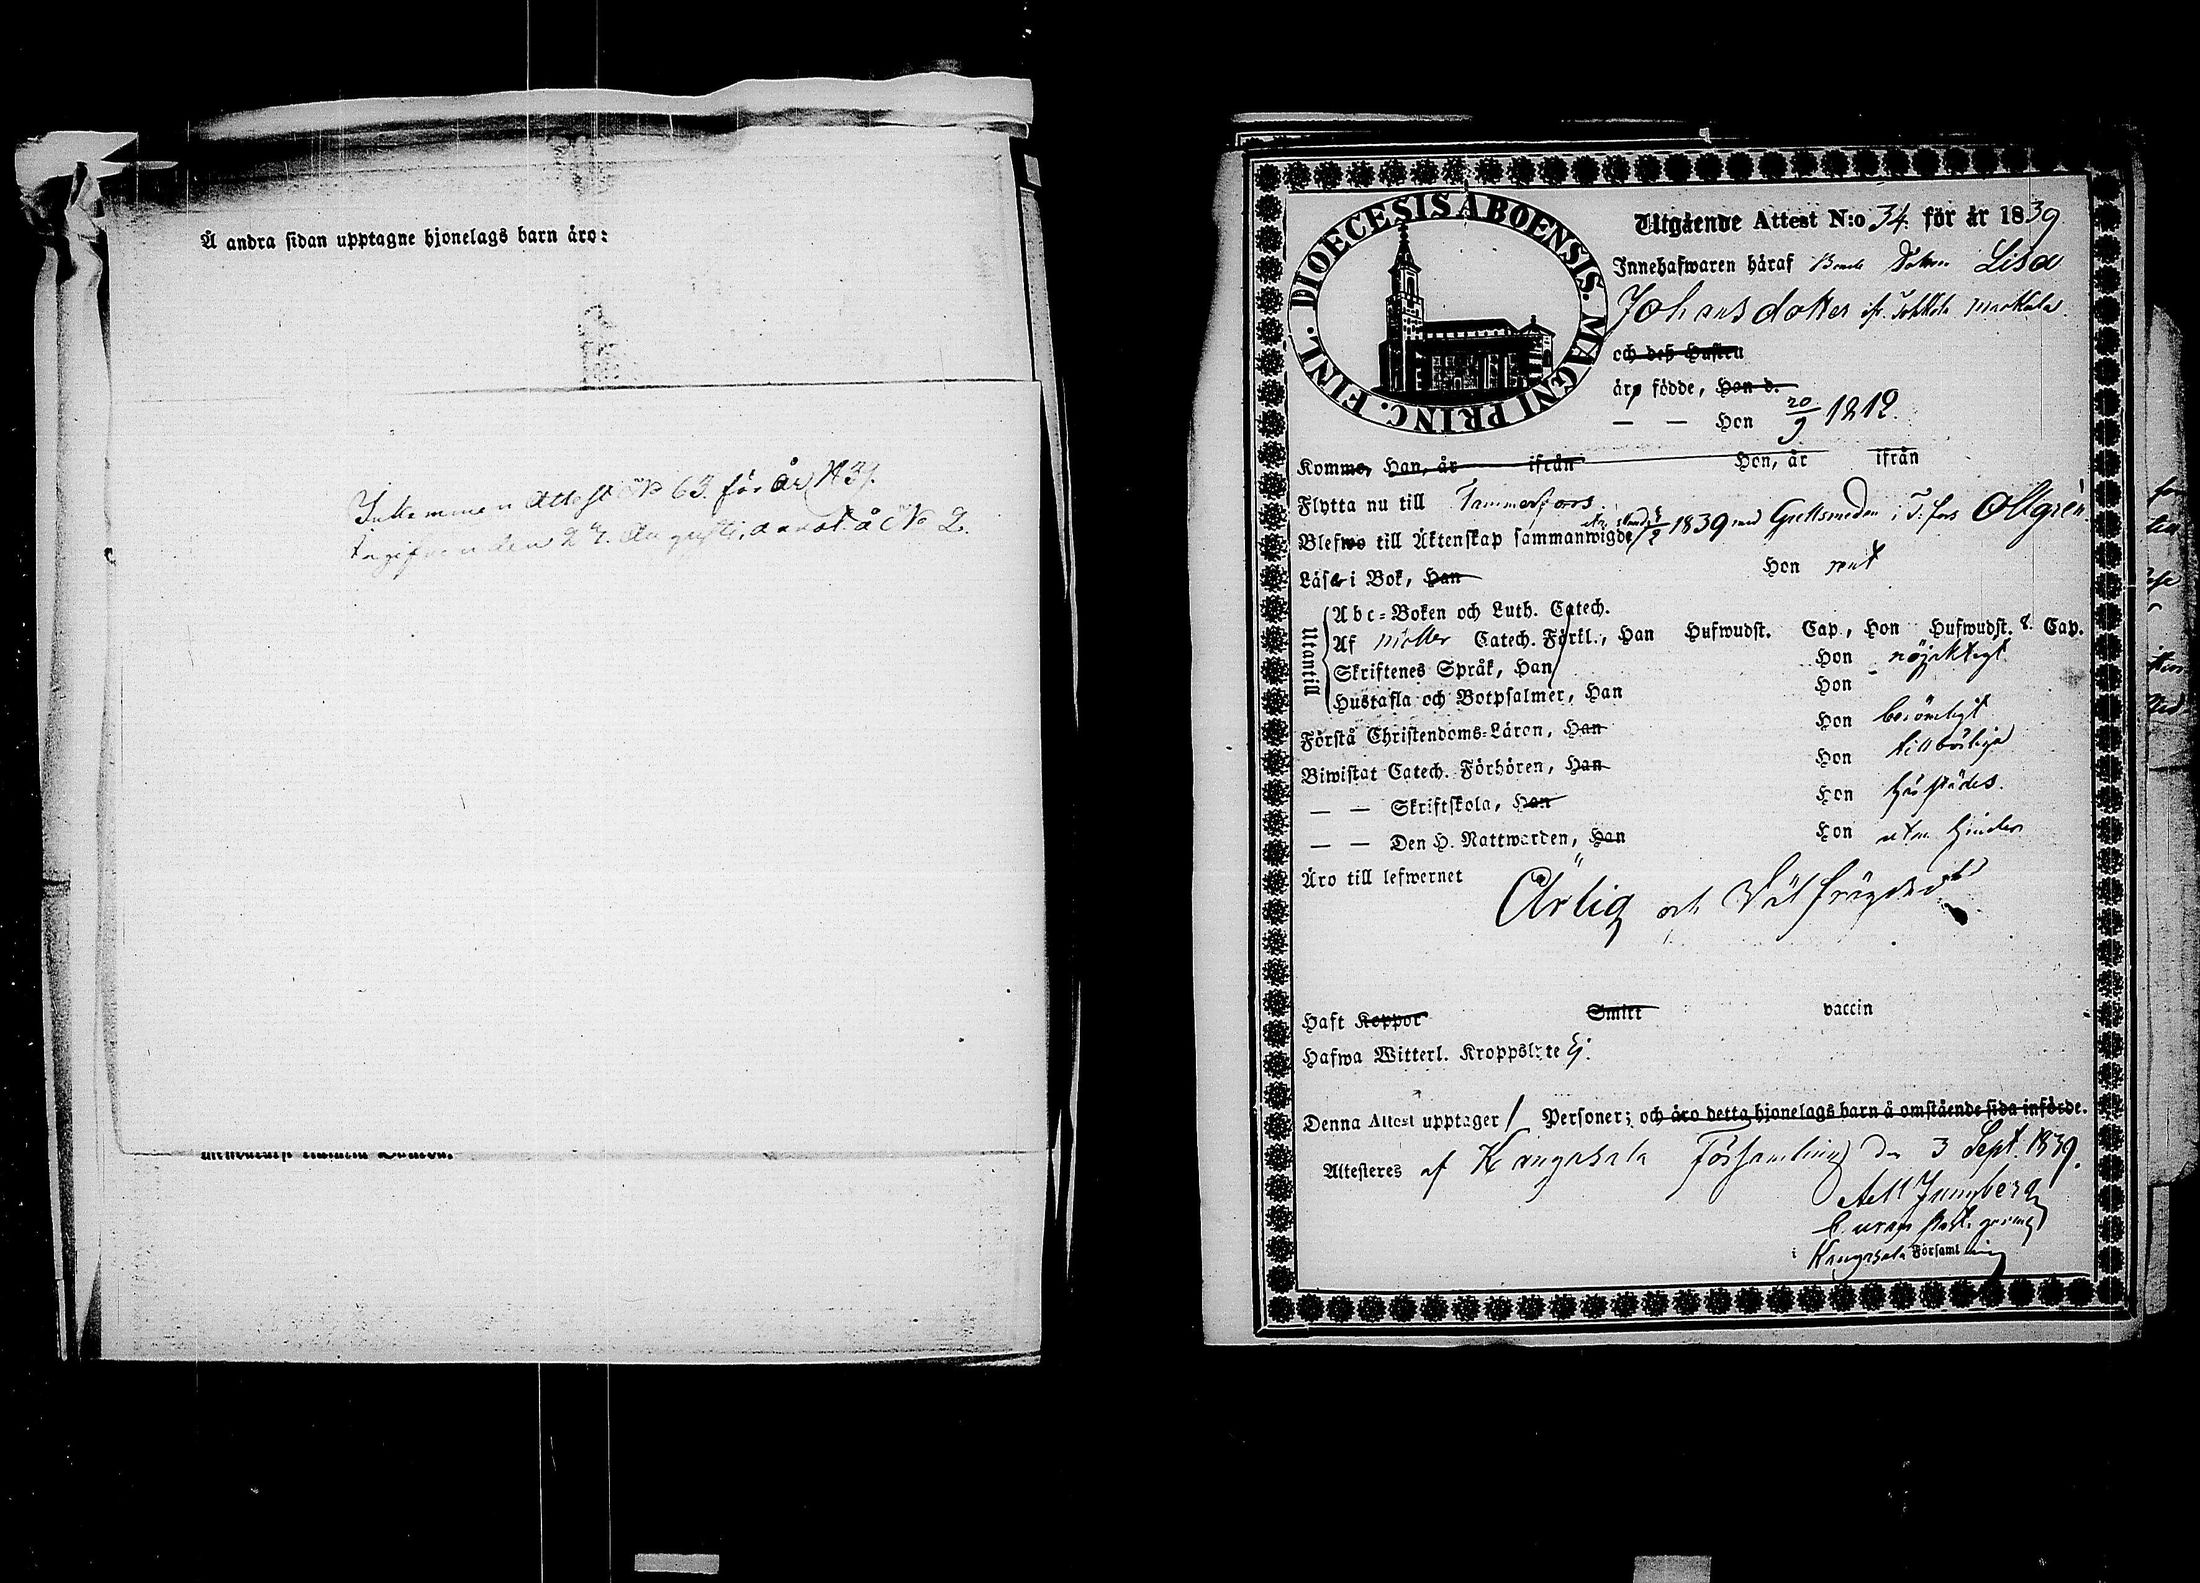 Å andra sidan upptagne hjonelags barn äro:
Inkommen Attest No 63. för år 1839.
Ingifven den 27. Augusti, annot. å No 2.
DIOECESIS ABOENSIS. MAGNI PRINC. FINL.
Utgående Attest N:o 34. för år 1839
Innehafwaren häraf Bonde Dottren Lisa
Johansdotter ifr. Markkula
och deß Hustru
äro födde, Han d.
— — Hon 20/9 1812.
Komme, Han, år ifrån Hon, år ifrån
Flytta nu till Tammerfors
Blefwo till Äktenskap sammanwigde 1839 med i T:fors
Läsa i Bok, Han Hon rent
Utantill
Abc-Boken och Luth. Catech.
Af Möller Catech. Förkl., Han Hufwudst. Cap., Hon Hufwudst. 8. Cap.
Skriftenes Språk, Han Hon nöjaktigt
Hustafla och Botpsalmer, Han Hon
Förstå Christendoms-Läron, Han Hon berömligt
Biwistat Catech. Förhören, Han Hon tillbörliga
— — Skriftskola, Han Hon härstädes.
— — Den H. Nattwarden, Han Hon utan hinder
Äro till lefwernet Ärlig och Välfrägdad
Haft Koppor Smitt vaccin
Hafwa Witterl. Kroppslyte Ej.
Denna Attest upptager 1 Personer; och äro detta hjonelags barn å omstående sida införde.
Attesteres af Kangasala Församling den 3 Sept. 1839.
i Kangasala Församling